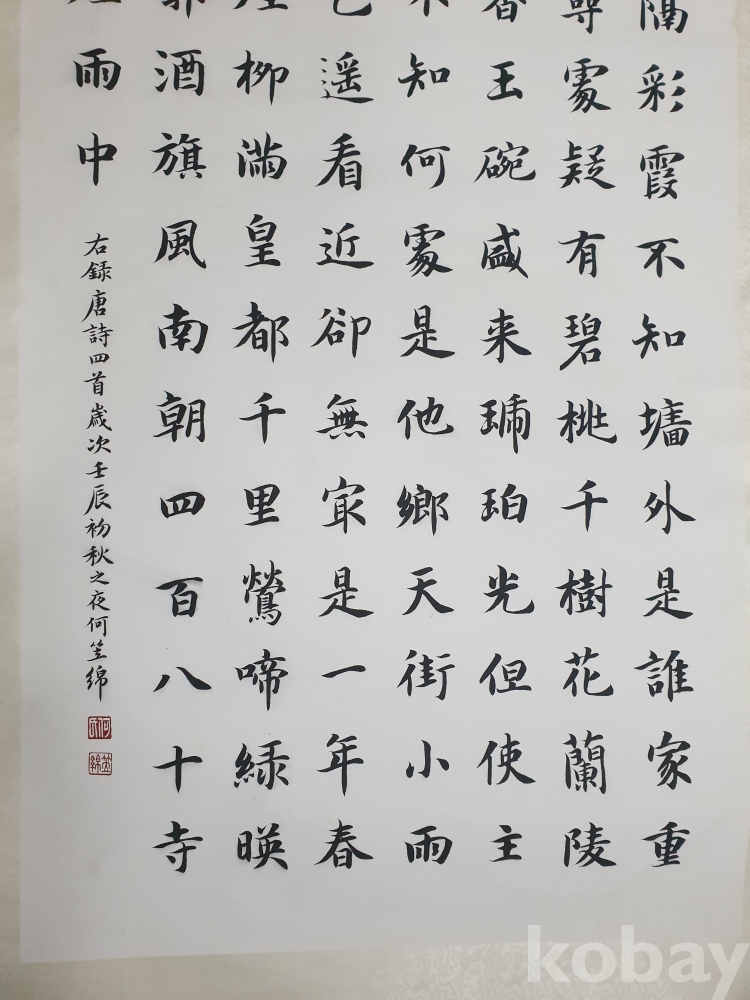 隔彩霞不知墻外是誰家重
尋處疑有碧桃千樹花蘭陵
香王碗盛来琥珀光但使主
不知何處是他鄉天街小雨
色遥看近卻無㝡是一年春
柳滿皇都千里鶯啼綠暎
郭酒旗風南朝四百八十寺
雨中
右録唐詩四首歲次壬辰初秋之夜何笠綿
笠綿
kobay